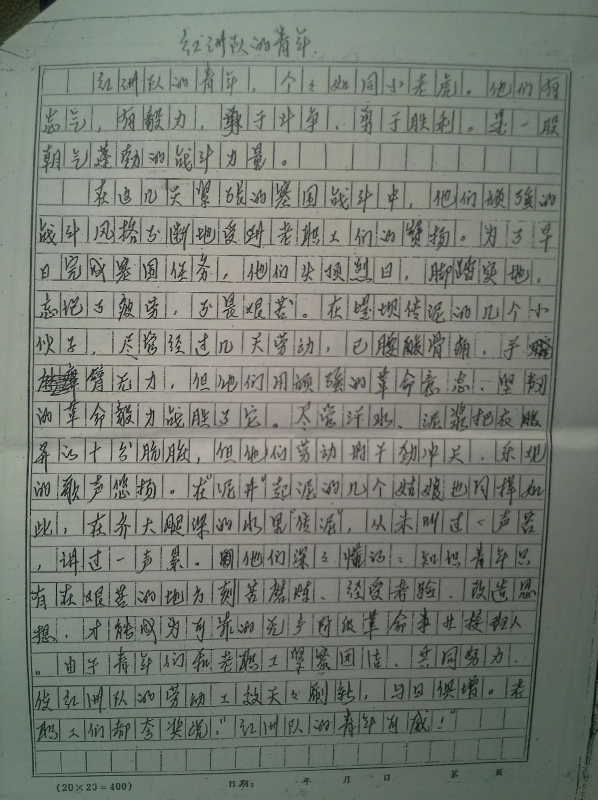 红洲队的青年.
红洲队的青年，个々如同小老虎。他们有
志气，有毅力，勇于斗争、勇于胜利。是一股
朝气蓬勃的战斗力量。
在这几天紧张的垦围战斗中，他们顽强的
战斗风格不断地受到老职工们的赞扬。为了早
日完成垦围任务，他们头顶烈日，脚踏实地，
忘记了疲劳，不畏艰苦。在堤坝传泥的几个小
伙子，尽管经过几天劳动，已腰酸骨痛，手
臂无力，但他们用顽强的革命意志、坚韧
的革命毅力战胜了它。尽管汗水、泥浆把衣服
弄的十分肮脏，但他们劳动时干劲冲天、乐观
的歌声悠扬。在"泥井"起泥的几个姑娘也同样如
此，在齐大腿深的水里"传泥"，从未叫过一声苦
，讲过一声累。因他们深々懂的：知识青年只
有在艰苦的地方刻苦磨炼、经受考验、改造思
想，才能成为可靠的无产阶级革命事业接班人
。由于青年们和老职工紧紧团结、共同努力，
使红洲队的劳动工效天々刷新，与日俱增。老
职工们都夸奖说："红洲队的青年有威！"
(20×20=400)
日期：　年　月　日　第　页